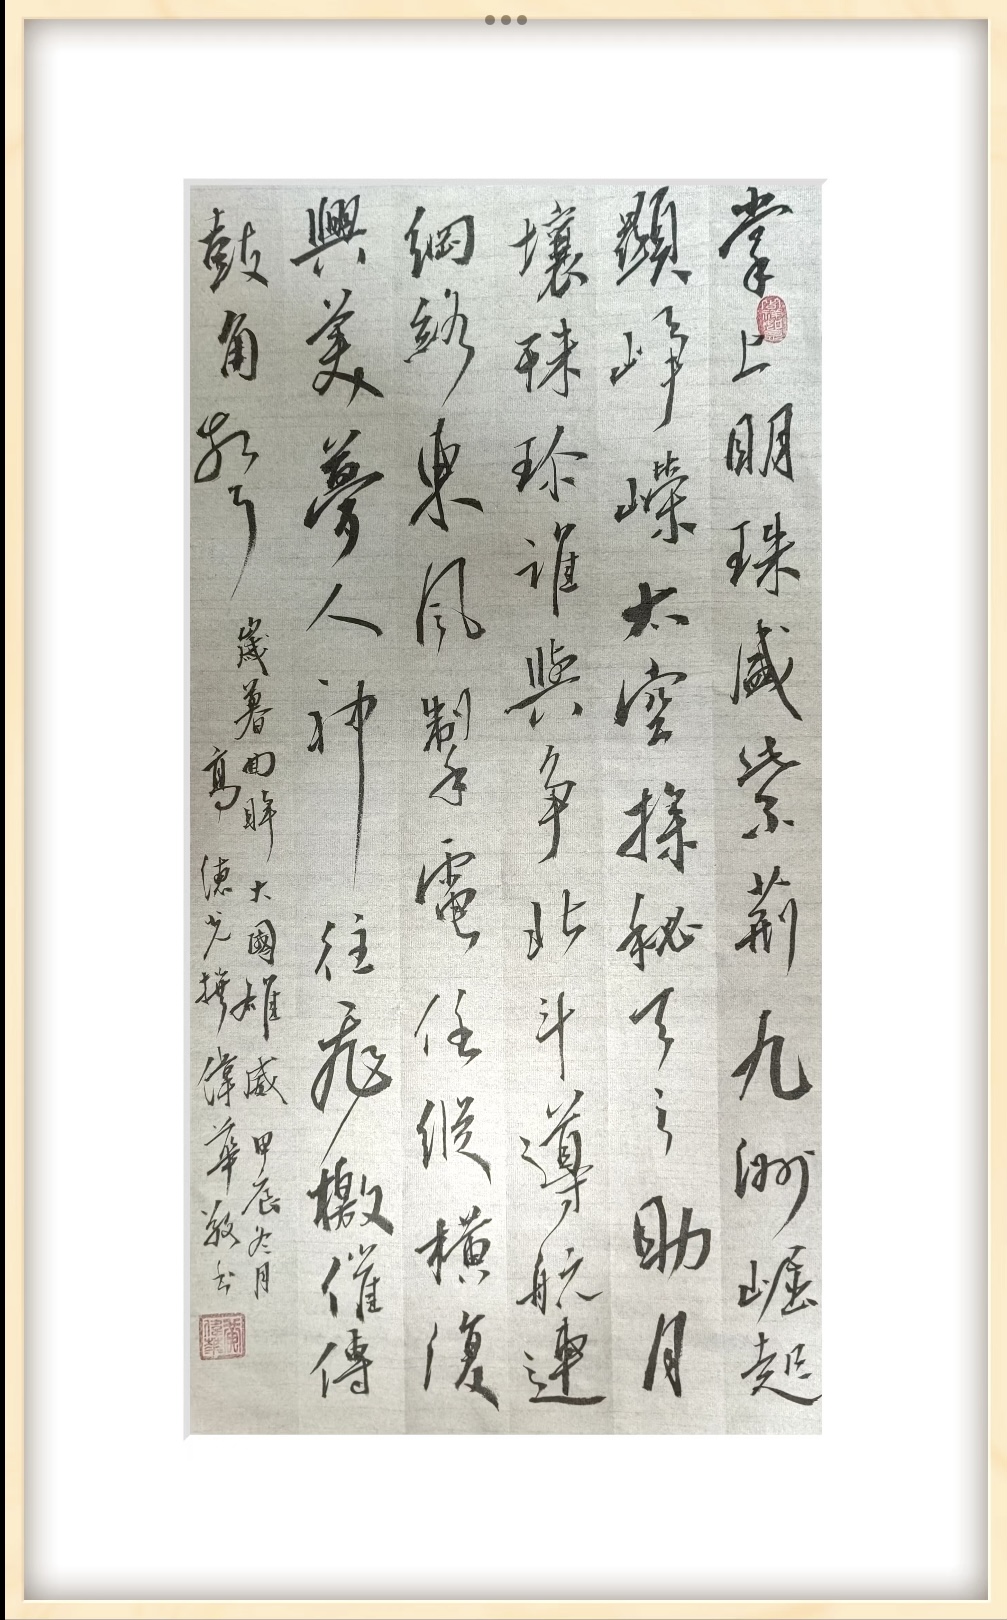 掌上明珠盛紫荆九洲崛起
顯峥嶸太空探秘天之助月
壤珠珍誰與争北斗導航連
網絡東風掣電任縱橫復
興美夢人神往飛檄催傳
鼓角聲
歲暮回眸大國雄威甲辰冬月
高德光撰偉華敬书